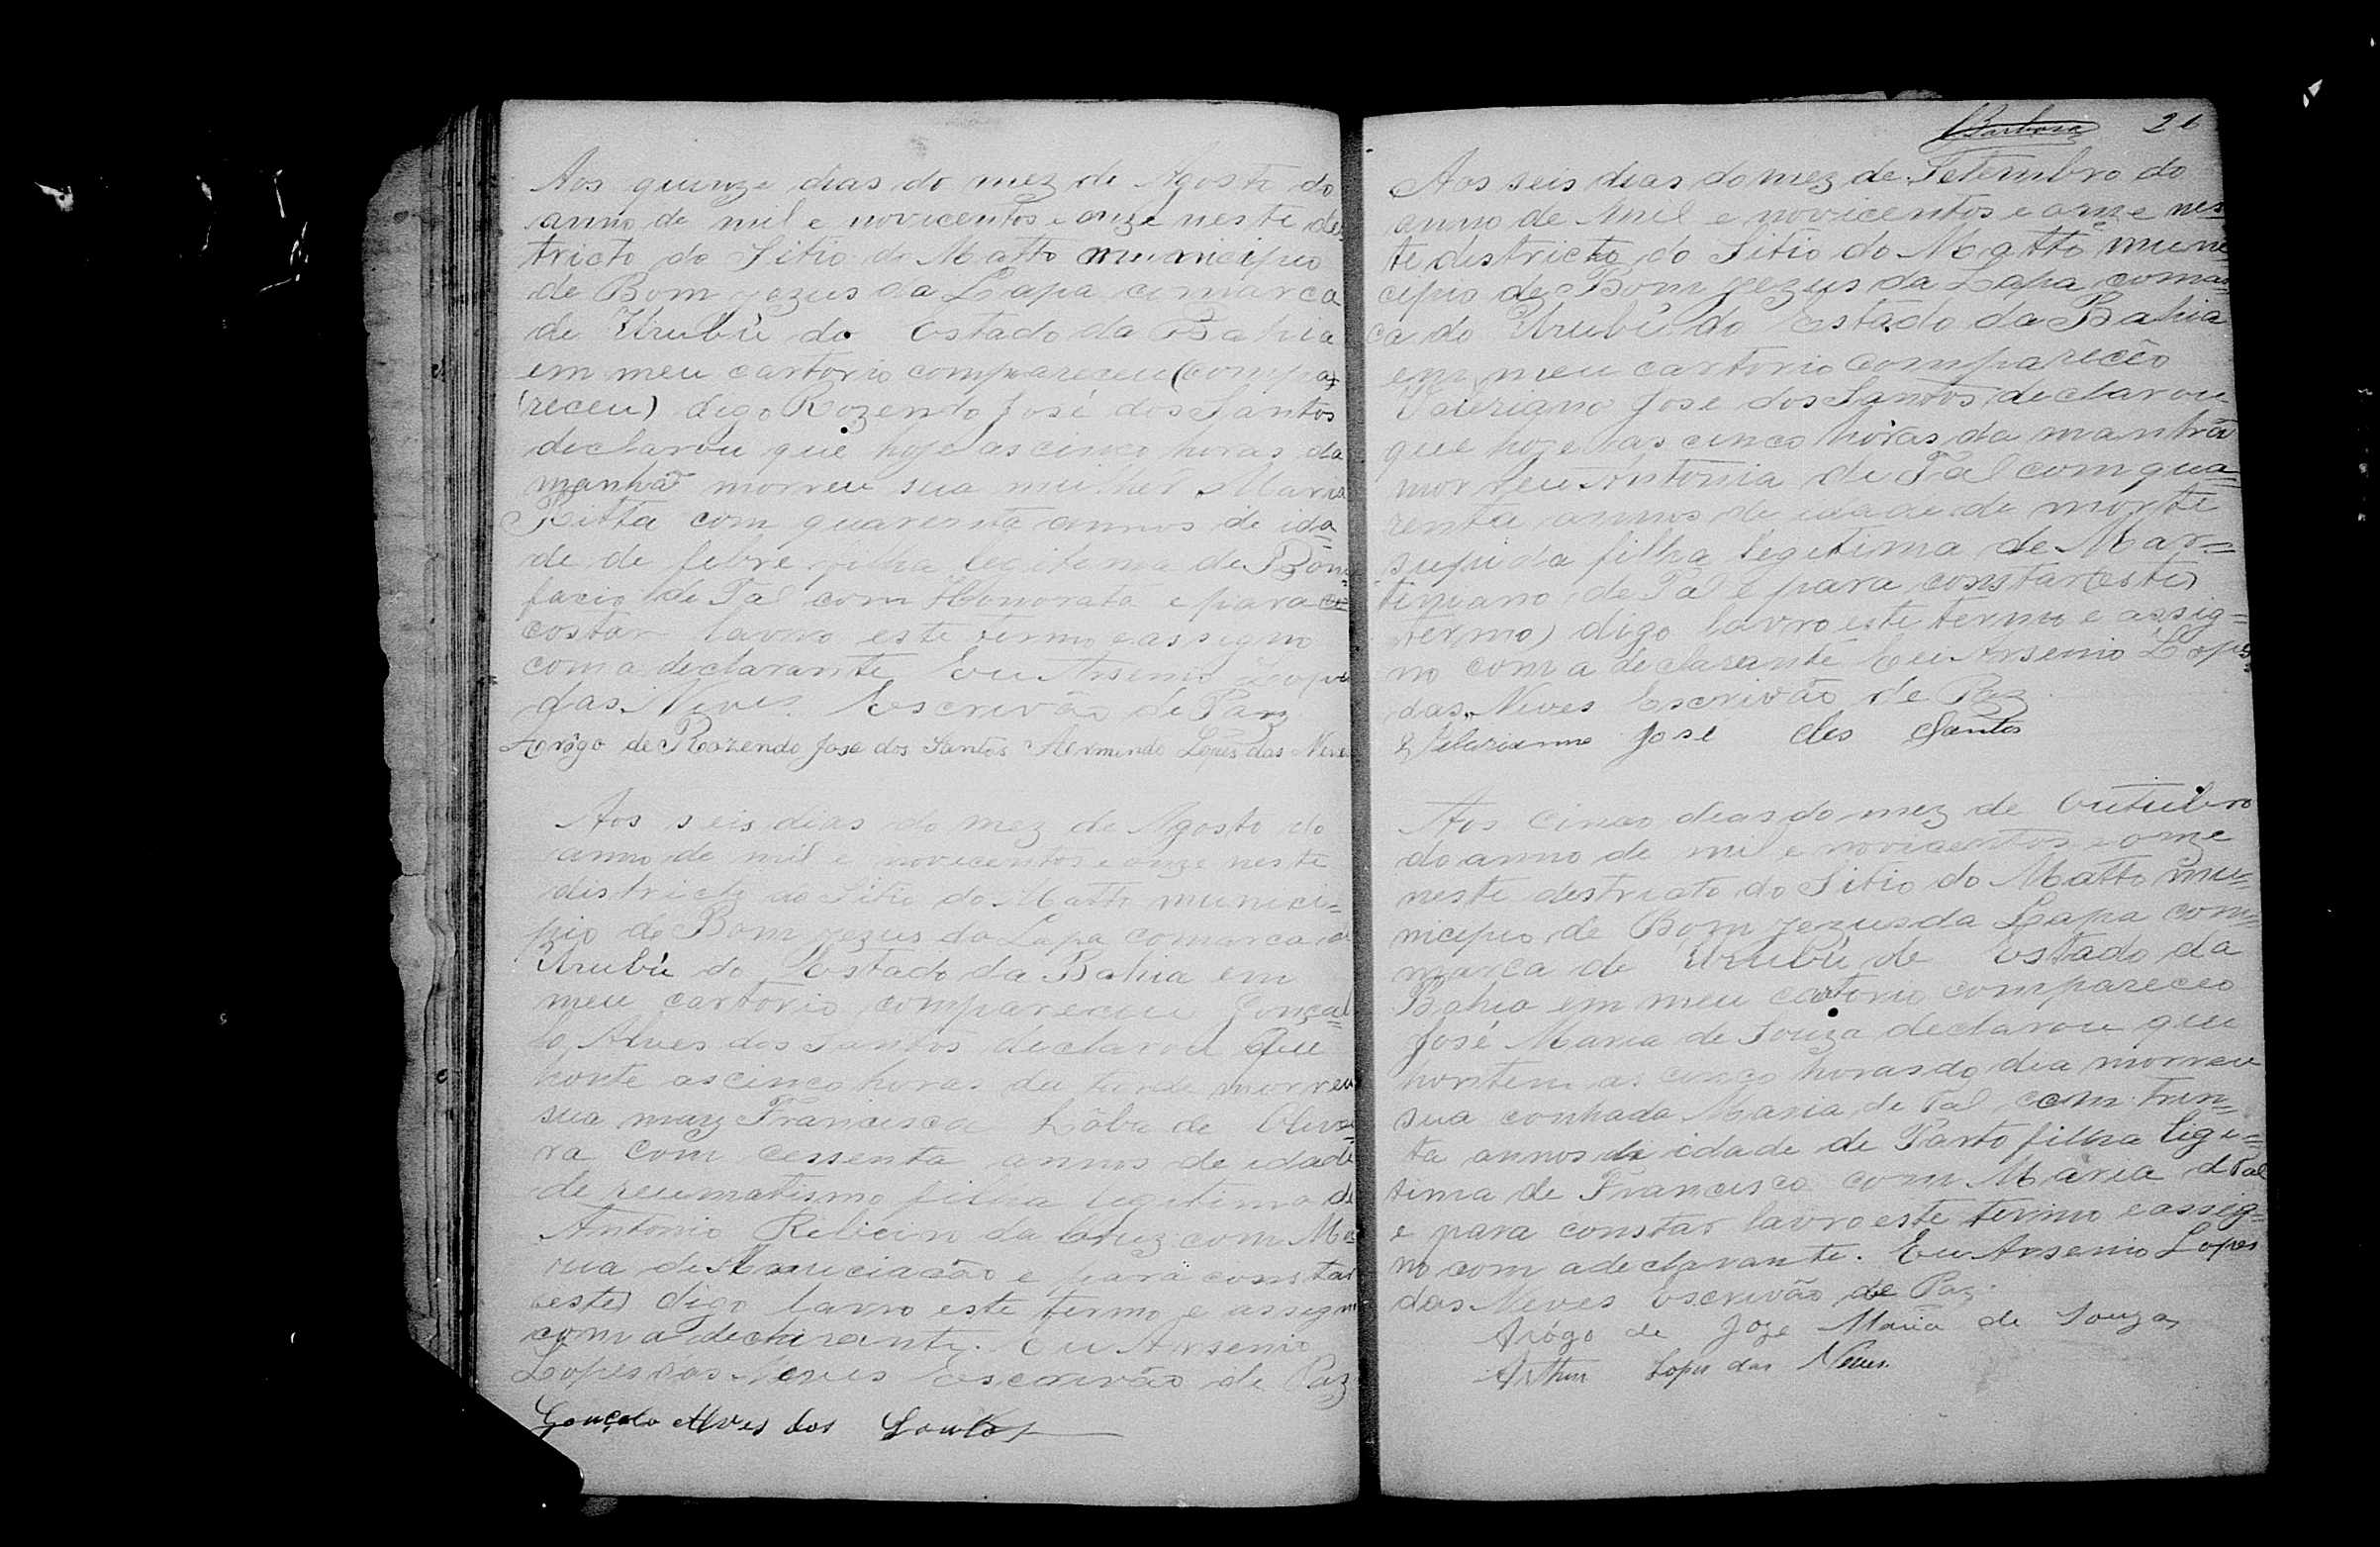 Aos quinze dias do mez de Agosto do
anno de mil e novicentos e onze neste des
tricto do Sitio do Matto municipio
de Bom Jezus da Lapa comarca
de Urubù do Estado da Bahia
em meu cartorio compareceu (compa=
receu) digo Rozendo José dos Santos
declarou que hoje as cinco horas da
manhã morreu sua mulher Maria
Ritta com quarenta annos de ida=
de de febre filha legitima de Boni=
facio de Tal com Honorata e para co=
costar lavro este termo e assigno
com a declarante Eu Arsenio Lopes
das Neves Escrivão de Paz
Arôgo de Rozendo Jose dos Santos Armindo Lopes das Neves
Aos seis dias do mez de Agosto do
anno de mil e novicentos e onze neste
districto do Sitio do Matto munici=
pio de Bom Jezus da Lapa comarca de
Urubù do Estado da Bahia em
meu cartorio compareceu Gonçal=
lo Alves dos Santos declarou que
honte as cinco horas da tarde morreu
sua may Francisca Lôbo de Olivei=
ra com cessenta annos de idade
de reumatismo filha legitima de
Antonio Ribeiro da Cruz com Ma=
ria de Anuciação e para constar
este) digo lavro este termo e assigno
com a declarante. Eu Arsenio
Lopes das Neves Escrivão de Paz
Gonçalo Alves dos Santos
Barbosa 26
Aos seis dias do mez de Setembro do
anno de mil e novicentos e onze nes
te districto do Sitio do Matto mune
cipio de Bom Jezus da Lapa comar=
ca do Urubú do Estado da Bahia
em meu cartorio comparecêo
Valeriano Jose dos Santos declarou
que hoje as cinco horas da manhã
morreu Antonia de Tal com qua=
renta annos de idade de morte
supida filha legitima de Mar=
tiniano de Tal e para constar (este)
termo) digo lavro este termo e assig=
no com a declarante Eu Arsenio Lopes
das Neves Escrivão de Paz
Jose dos Santos
Aos cinco dias do mez de Outubro
do anno de mil e novicentos e onze
neste destricto do Sitio do Matto mu=
nicipio de Bom Jezus da Lapa com=
marca de Urubú de Estado da
Bahia em meu cartorio compareceo
José Maria de Souza declarou que
hontem as cinco horas do dia morreu
sua conhada Maria de Tal com trin=
ta annos de idade de Parto filha ligi=
tima de Francisco com Maria d Tal
e para constar lavro este termo e assig=
no com a declarante. Eu Arsenio Lopes
das Neves Escrivão de Paz.
Arôgo de Joze Maria de Souza
Arthur Lopes das Neves.